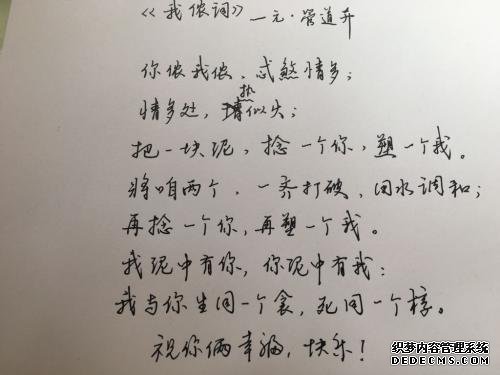 《我侬词》—元·管道升
你侬我侬，忒煞情多；
情多处，热似火；
把一块泥，捻一个你，塑一个我。
将咱两个，一齐打破，用水调和；
再捻一个你，再塑一个我。
我泥中有你，你泥中有我：
我与你生同一个衾，死同一个椁。
祝你俩幸福，快乐！
织梦内容管理系统
DEDECMS.COM